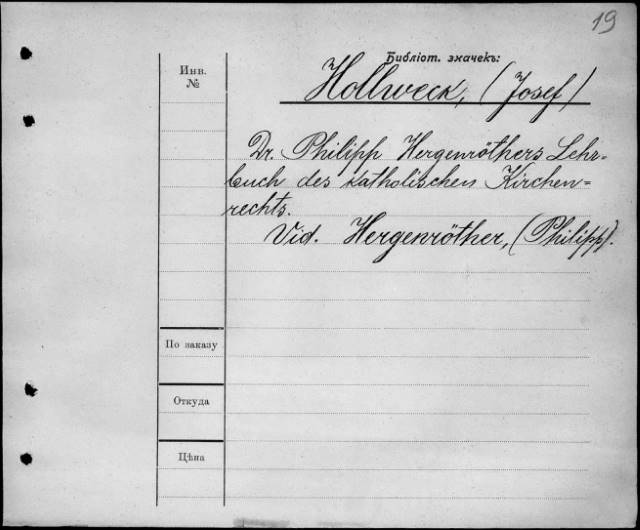 19
Библіот. значекъ:
Инв.
№
Hollweck, (Josef)
Dr. Philipp Hergenröthers Lehr-
buch des katholischen Kirchen=
rechts.
Vid. Hergenröther, (Philipp).
По заказу
Откуда
Цѣна